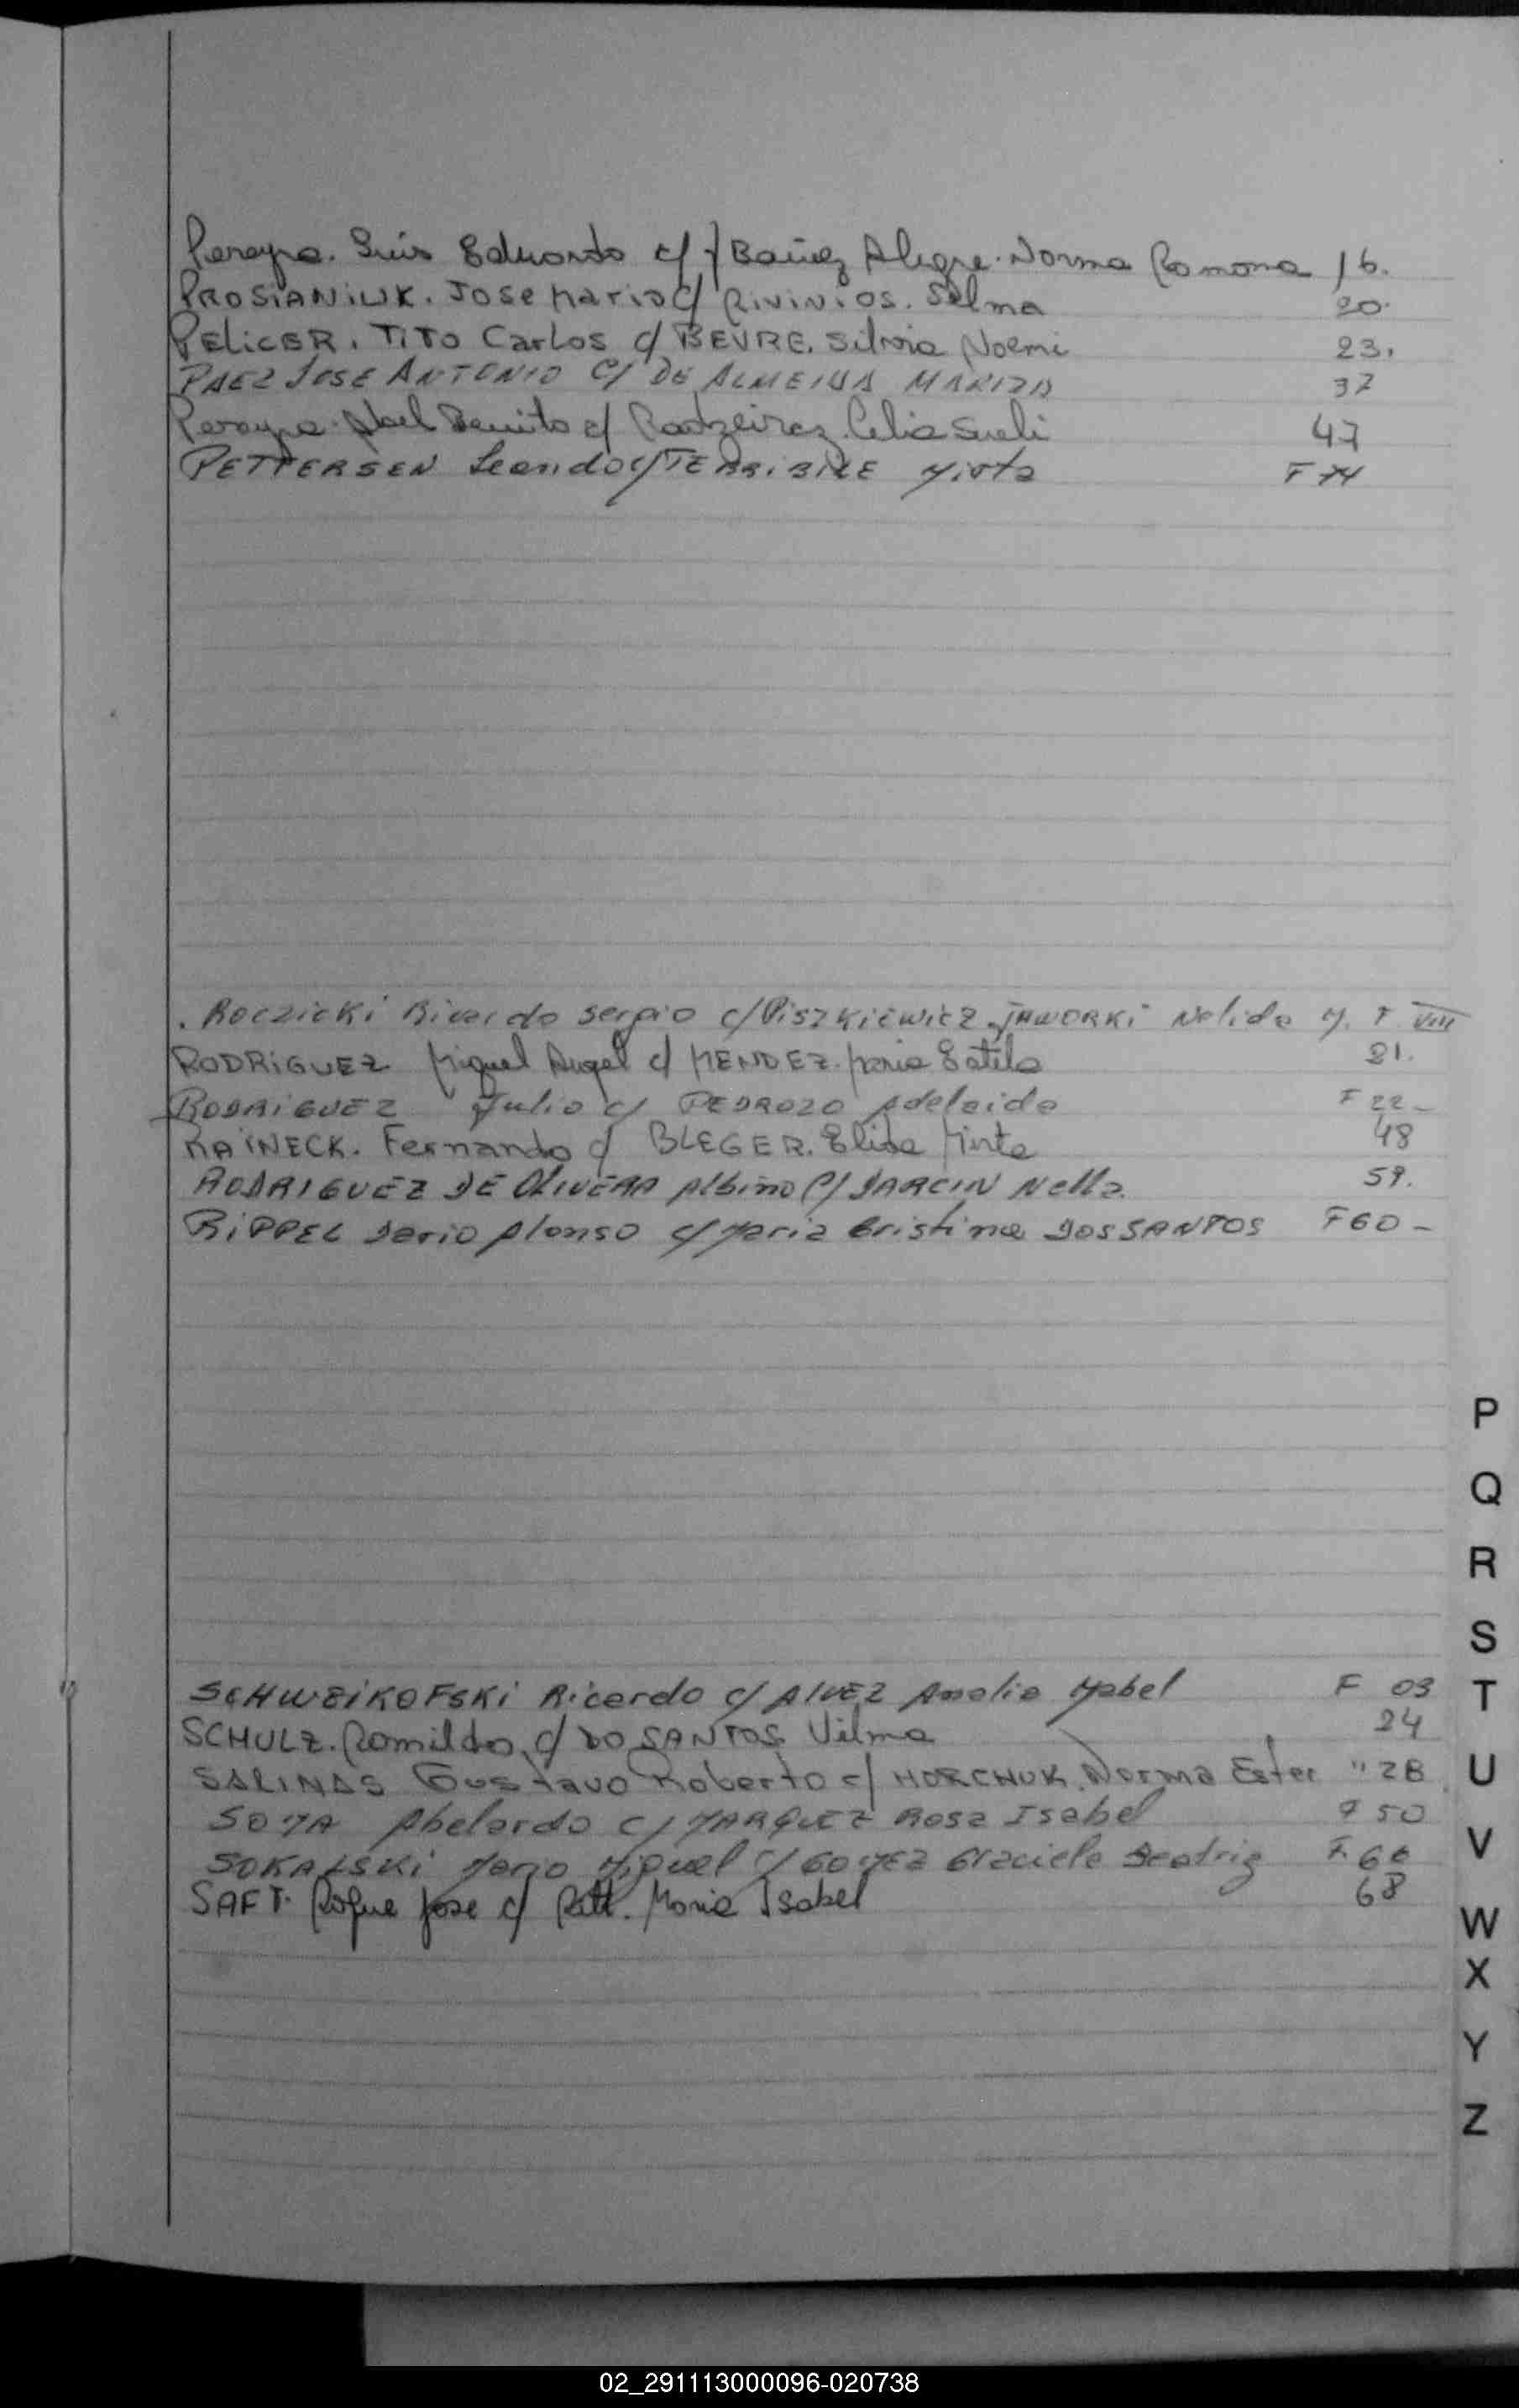 Pereyra. Luis Eduardo c/ Bañez Alegre. Norma Ramona 16.
PROSIANIUK. Jose Mario c/ RIVINIOS. Selma 20.
PELICER. TITO Carlos c/ BEVRE. Silvia Noemi 23.
PAEZ JOSE ANTONIO C/ DE ALMEIDA MARIZA 37
Pereyra. Abel Benito c/ Celia Sueli 47
PETTERSEN Leando c/ TERRIBILE Mirta F 74
. ROCZICKI Ricardo Sergio c/ PISZKIEWICZ JAWORKI Nelida M. F VIII
RODRIGUEZ Miguel Angel c/ MENDEZ. Maria 21.
RODRIGUEZ Julio c/ PEDROZO Adelaida F 22-
RAINECK. Fernando c/ BLEGER. Elisa Mirta 48
RODRIGUEZ DE OLIVERA Albino C/ DARCIN Nella. 59.
RIPPEL Dario Alonso c/ Maria Cristina DOS SANTOS F 60-
P
Q
R
S
T
U
V
W
X
Y
Z
SCHWEIKOFSKI Ricardo c/ ALVEZ Analia Mabel F 03
SCHULZ. Romildo c/ DO SANTOS Vilma 24
SALINAS Gustavo Roberto c/ HORCHUK. Norma Ester " 28
SOMA Abelardo C/ MARQUEZ Rosa Isabel F 50
SOKALSKI Mario Miguel c/ GOMEZ Graciela Beatriz F. 66
SAFT. Roque Jose c/ Ratt. Maria Isabel 68
02_291113000096-020738